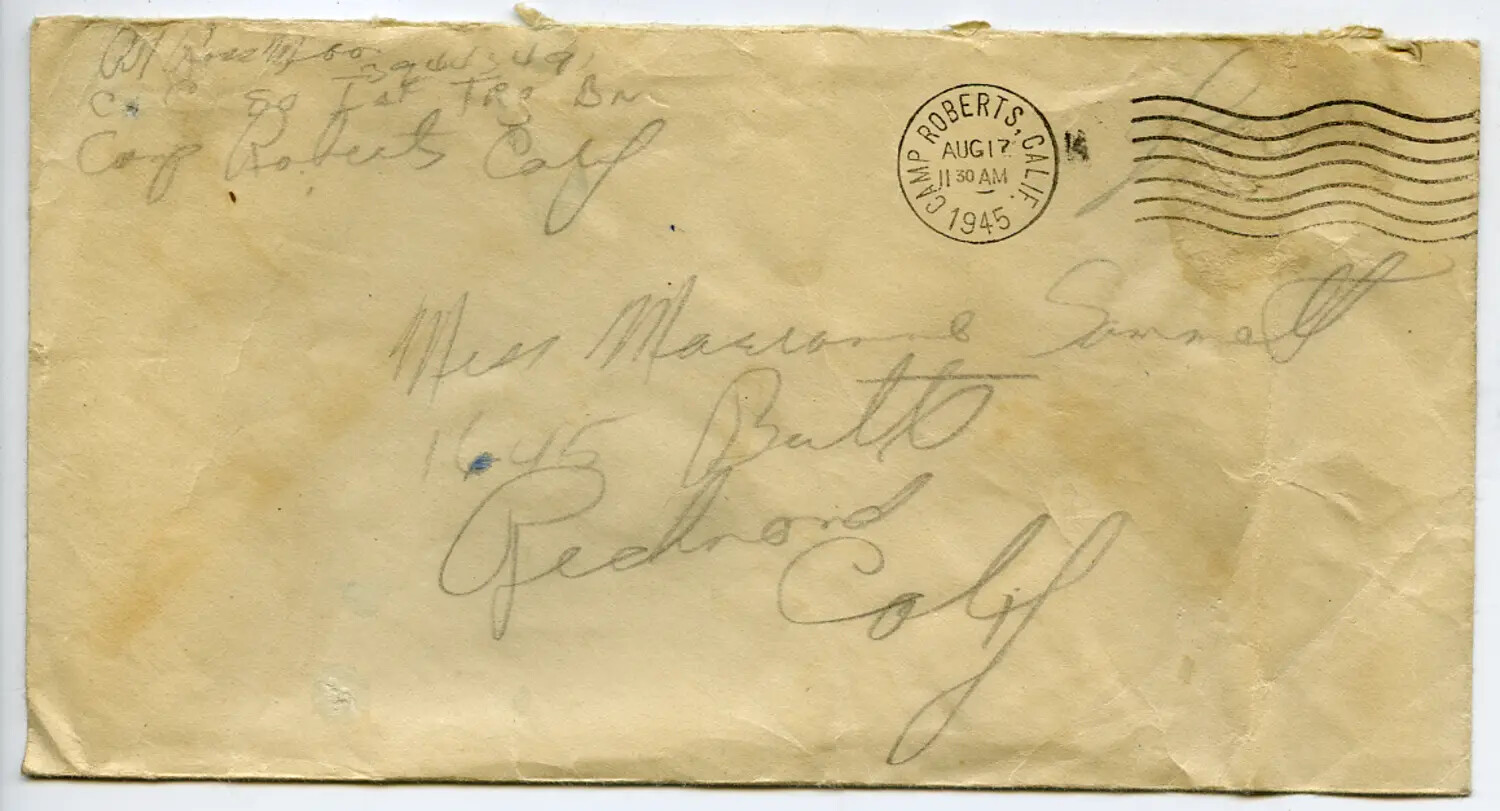 Pvt Ross
Co C 89 Inf TRg Bn
Camp Roberts Calif
CAMP ROBERTS, CALIF.
AUG 17
11 30 AM
1945
Miss Marianne Sammett
1645 Butte
Redmond
Calif